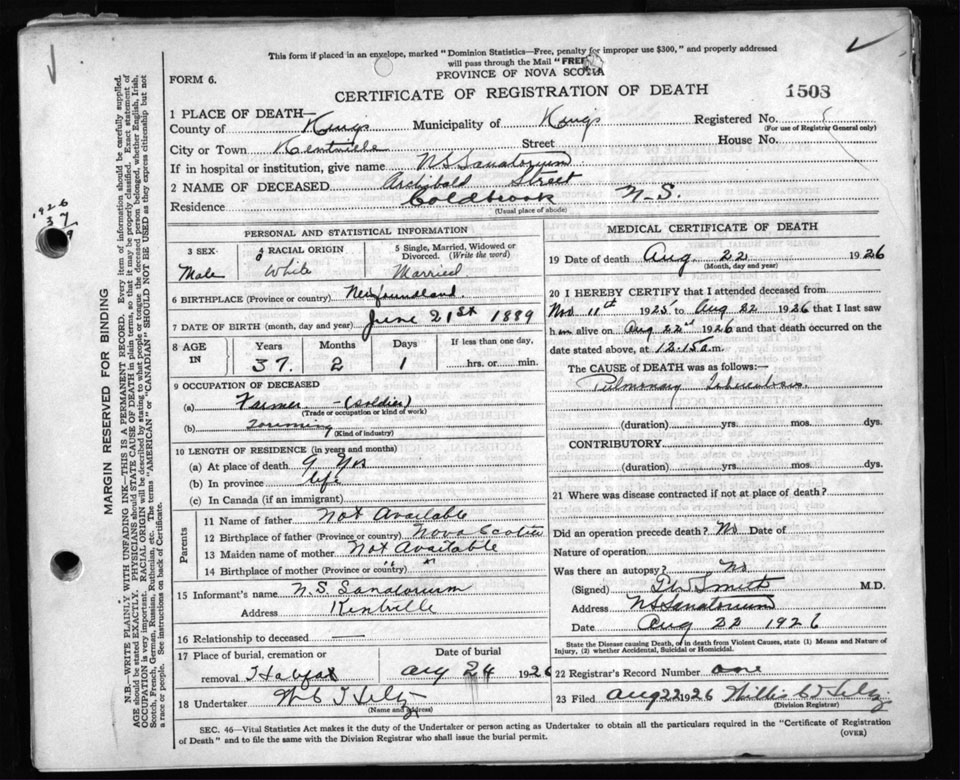 This form if placed in an envelope, marked "Dominion Statistics—Free, penalty for improper use $300," and properly addressed
will pass through the Mail "FREE"
PROVINCE OF NOVA SCOTIA
FORM 6.
CERTIFICATE OF REGISTRATION OF DEATH
1503
1 PLACE OF DEATH—
County of Kings Municipality of Kings Registered No.
(For use of Registrar General only)
City or Town Kentville Street House No.
If in hospital or institution, give name N S Sanatorium
2 NAME OF DECEASED Archibald Street
Residence Coldbrook N-S.
(Usual place of abode)
PERSONAL AND STATISTICAL INFORMATION
3 SEX Male
4 RACIAL ORIGIN White
5 Single, Married, Widowed or Divorced. (Write the word) Married
6 BIRTHPLACE (Province or country) Newfoundland
7 DATE OF BIRTH (month, day and year) June 21st 1889
8 AGE IN Years Months Days If less than one day,
37. 2 1 hrs. or min.
9 OCCUPATION OF DECEASED
(a) Farmer - (Soldier)
(Trade or occupation or kind of work)
(b)
(Kind of industry)
10 LENGTH OF RESIDENCE (in years and months)
(a) At place of death 9 Yrs
(b) In province life
(c) In Canada (if an immigrant)
Parents
11 Name of father Not Available
12 Birthplace of father (Province or country) Nova Scotia
13 Maiden name of mother Not Available
14 Birthplace of mother (Province or country) " "
15 Informant's name N. S. Sanatorium
Address Kentville
16 Relationship to deceased —
17 Place of burial, cremation or Date of burial
removal Halifax Aug 24 1926
18 Undertaker
(Name and address)
MEDICAL CERTIFICATE OF DEATH
19 Date of death Aug. 22 1926
(Month, day and year)
20 I HEREBY CERTIFY that I attended deceased from
Nov 11th 1925 to Aug 22 1926 that I last saw
him alive on Aug 22nd 1926 and that death occurred on
date stated above, at 12.15 a.m.
The CAUSE OF DEATH was as follows:—
Pulmonary Tuberculosis
(duration) yrs. mos. dys.
CONTRIBUTORY
(duration) yrs. mos. dys.
21 Where was disease contracted if not at place of death?
Did an operation precede death? No Date of
Nature of operation
Was there an autopsy? No
(Signed) Smith M.D.
Address N S Sanatorium
Date Aug 22 1926
State the Disease causing Death, or in death from Violent Causes, state (1) Means and Nature of
Injury, (2) whether Accidental, Suicidal or Homicidal.
22 Registrar's Record Number one
23 Filed Aug 22 1926 Willis
(Division Registrar)
SEC. 46—Vital Statistics Act makes it the duty of the Undertaker or person acting as Undertaker to obtain all the particulars required in the "Certificate of Registration
of Death" and to file the same with the Division Registrar who shall issue the burial permit.
(OVER)
MARGIN RESERVED FOR BINDING
N.B.—WRITE PLAINLY WITH UNFADING INK—THIS IS A PERMANENT RECORD. Every item of information should be carefully supplied.
AGE should be stated EXACTLY. PHYSICIANS should STATE CAUSE OF DEATH in plain terms, so that it may be properly classified. Exact statement of
OCCUPATION is very important. RACIAL ORIGIN will be described by stating to what people or tongue the deceased person belonged, whether English, Irish,
Scotch, French, German, Russian, Ruthenian, etc. The terms "AMERICAN" or "CANADIAN" SHOULD NOT BE USED as they express citizenship but not
a race or people. See instructions on back of Certificate.
1926
37